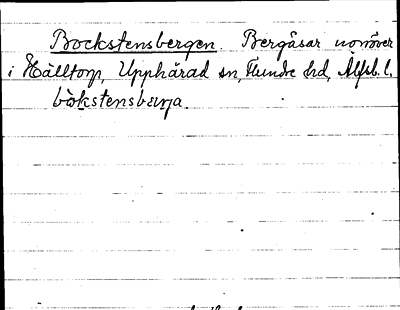 Bockstensbergen. Bergåsar norröver
i Hälltorp, Upphärad sn, Flundre hd, Älfsb. l.
bòkstensbærja.